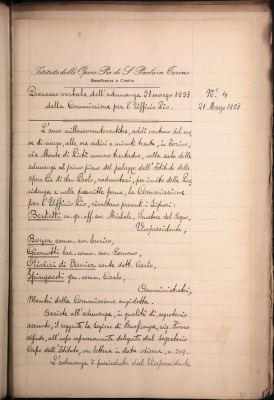 Istituto delle Opere Pie di S. Paolo in Torino
Beneficenza e Credito
Processo verbale dell'adunanza 21 marzo 1923
della Commissione per l'Ufficio Pio.
N.º 4
21 Marzo 1923
L'anno millenovecentoventitre, addì ventuno del me-
se di marzo, alle ore sedici e minuti trenta, in Torino,
via Monte di Pietà numero trentadue, nella sala delle
adunanze al primo piano del palazzo dell'Istituto delle
Opere Pie di San Paolo, radunatasi, per invito della Pre-
sidenza e nelle prescritte forme, la Commissione
per l'Ufficio Pio, risultano presenti i Signori:
Bertetti cav. gr. uff. avv. Michele, Senatore del Regno,
Vicepresidente,
Boyer comm. avv. Enrico,
Gianotti comm. avv. Romano,
Olivieri di Vernier conte dott. Carlo,
Spingardi comm. Carlo,
Amministratori,
Membri della Commissione anzidetta.
Assiste all'adunanza, in qualità di segretario
assunto, il reggente la Sezione di Beneficenza, sig.
all'uopo delegato dal Segretario
Capo dell'Istituto, con lettera in data
L'adunanza è presieduta dal Vicepresidente